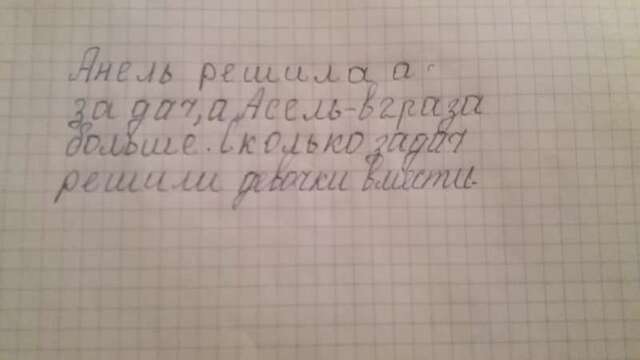 Анель решила а
задач, а Асель-в 2 раза
больше. Сколько задач
решили девочки вмести.